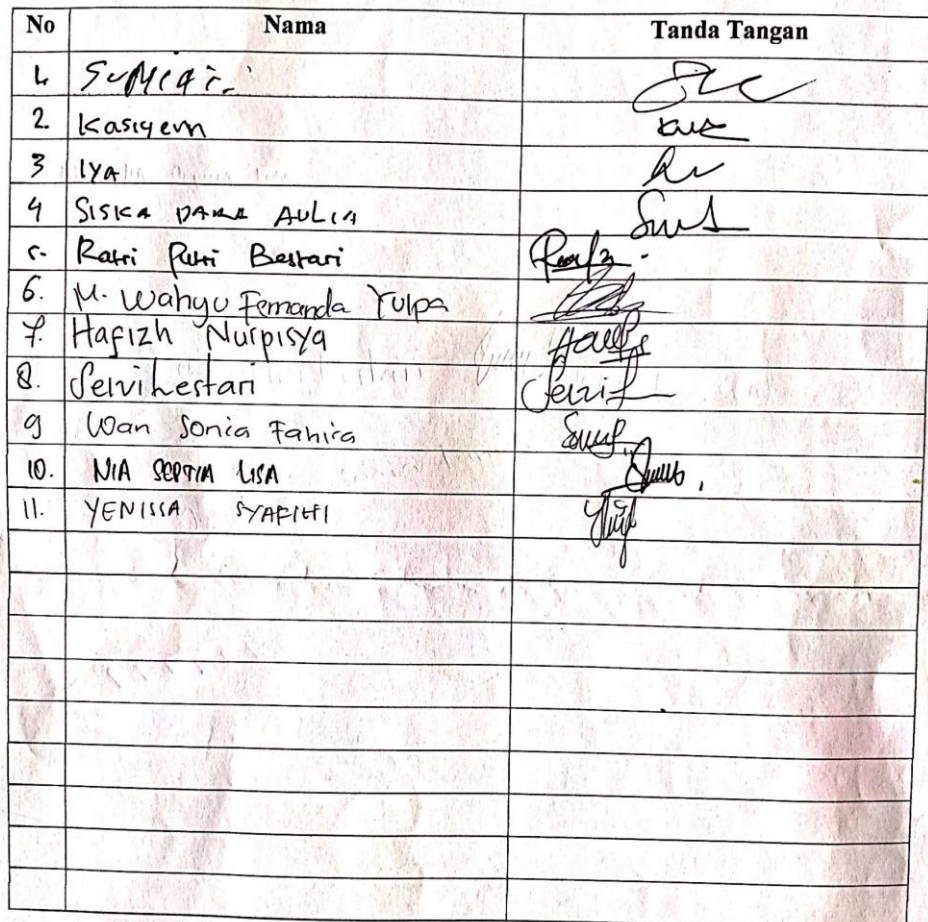 No Nama Tanda Tangan
1. Sumiati
2. Kasiyem
3 IYA
4 SISKA DARA AULIA
5. Ratri Putri Bestari
6. M. Wahyu Fernanda Yulpa
7. Hafizh Nurpisya
8. Selvi Lestari
9 Wan Sonia Fahira
10. NIA SEPTIA LISA
11. YENISSA SYAFITHI